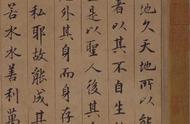 地久天地所以能
者以其不自生
是以聖人後其
外其身而身存
私耶故能成其
若水水善利萬